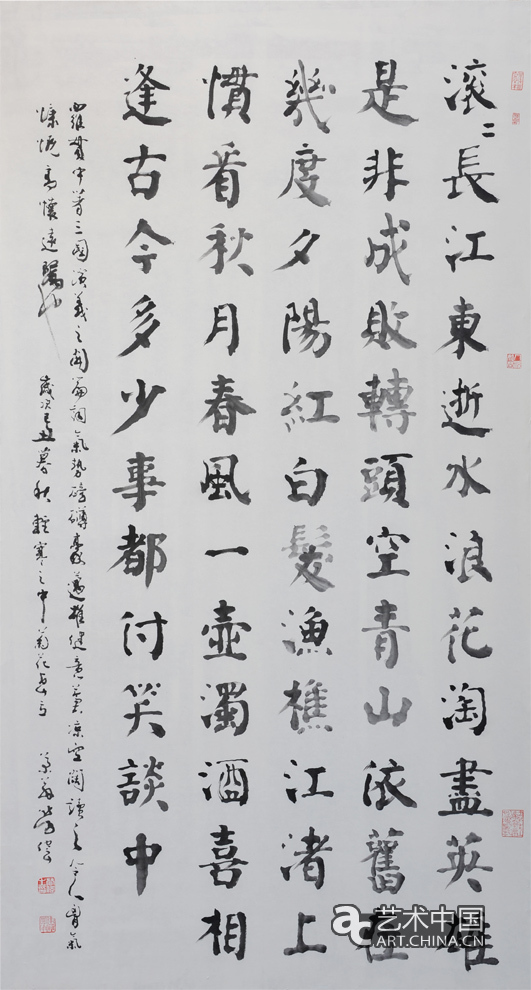 滚〻長江東逝水浪花淘盡英雄
是非成敗轉頭空青山依舊在
幾度夕陽紅白髮漁樵江渚上
慣看秋月春風一壺濁酒喜相
逢古今多少事都付笑談中
羅貫中著三國演義之開篇詞氣勢磅礴豪邁雄健意蒼凉空闊讀之令人胸氣
慷慨高懷遠矚也 歲次己丑暮秋輕寒之中菊花
艺术中国
ART.CHINA.CN